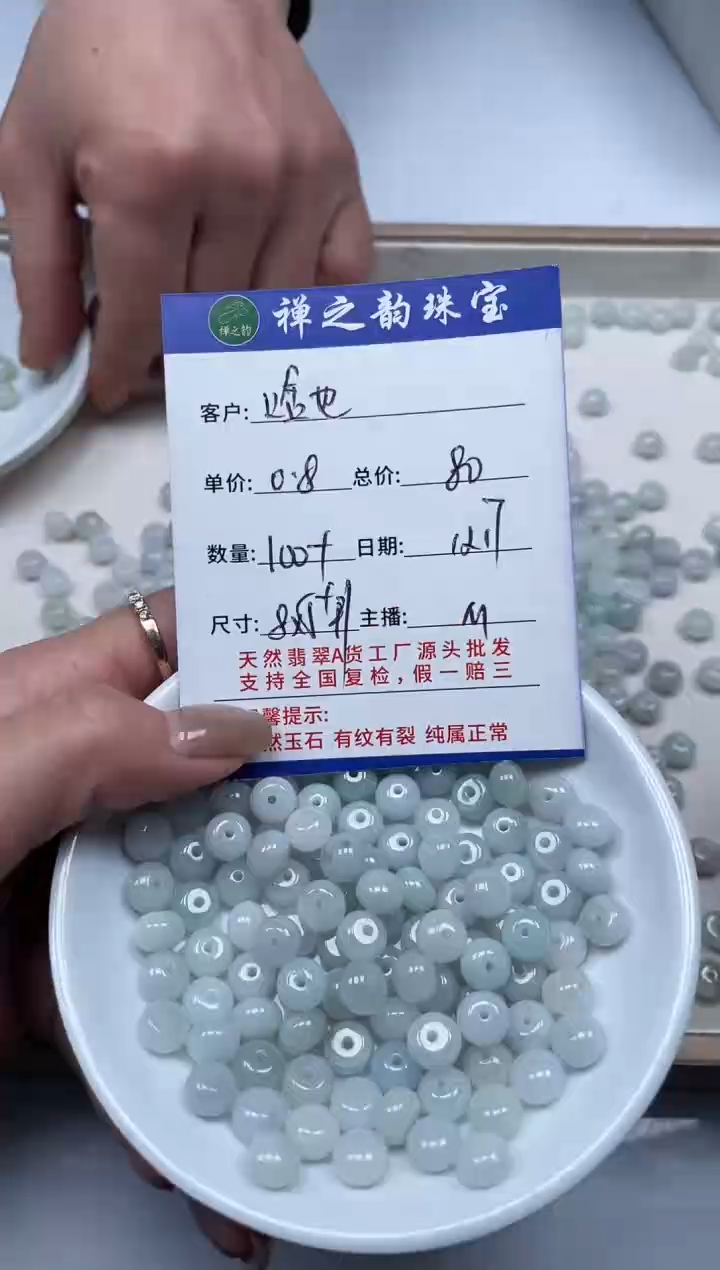 禅之韵
禅之韵珠宝
客户:
单价: 0.8 总价: 80
数量: 100+ 日期: 12.17
尺寸: 主播: M
天然翡翠A货工厂源头批发
支持全国复检,假一赔三
馨提示:
然玉石 有纹有裂 纯属正常